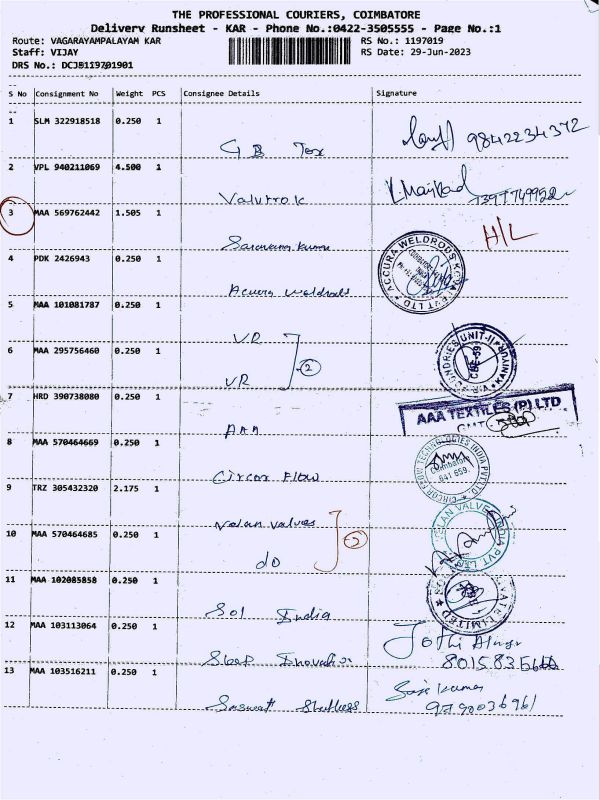 THE PROFESSIONAL COURIERS, COIMBATORE
Delivery Runsheet - KAR - Phone No.:0422-3505555 - Page No.:1
Route: VAGARAYAMPALAYAM KAR RS No.: 1197019
Staff: VIJAY RS Date: 29-Jun-2023
DRS No.: DCJB119701901
S No Consignment No Weight PCS Consignee Details Signature
1 SLM 322918518 0.250 1
G B Tex 9842234372
2 VPL 940211069 4.500 1
Valutrok
3 MAA 569762442 1.505 1 H/L
Saravana Kumar
4 PDK 2426943 0.250 1 ACCURA WELDRODS
Accura Weldrods
5 MAA 101081787 0.250 1
VR
6 MAA 295756460 0.250 1 2 UNIT-II
VR
7 HRD 390738080 0.250 1 AAA TEXTILES (P) LTD
AAA
8 MAA 570464669 0.250 1 CIRCOR FLOW TECHNOLOGIES INDIA PVT LTD
Coimbatore
641 659.
Circor Flow
9 TRZ 305432320 2.175 1
Nelan Valves
10 MAA 570464685 0.250 1 2
do
11 MAA 102085858 0.250 1 PRIVATE LIMITED
Sol India
12 MAA 103113064 0.250 1 Jothi
13 MAA 103516211 0.250 1
9790036961